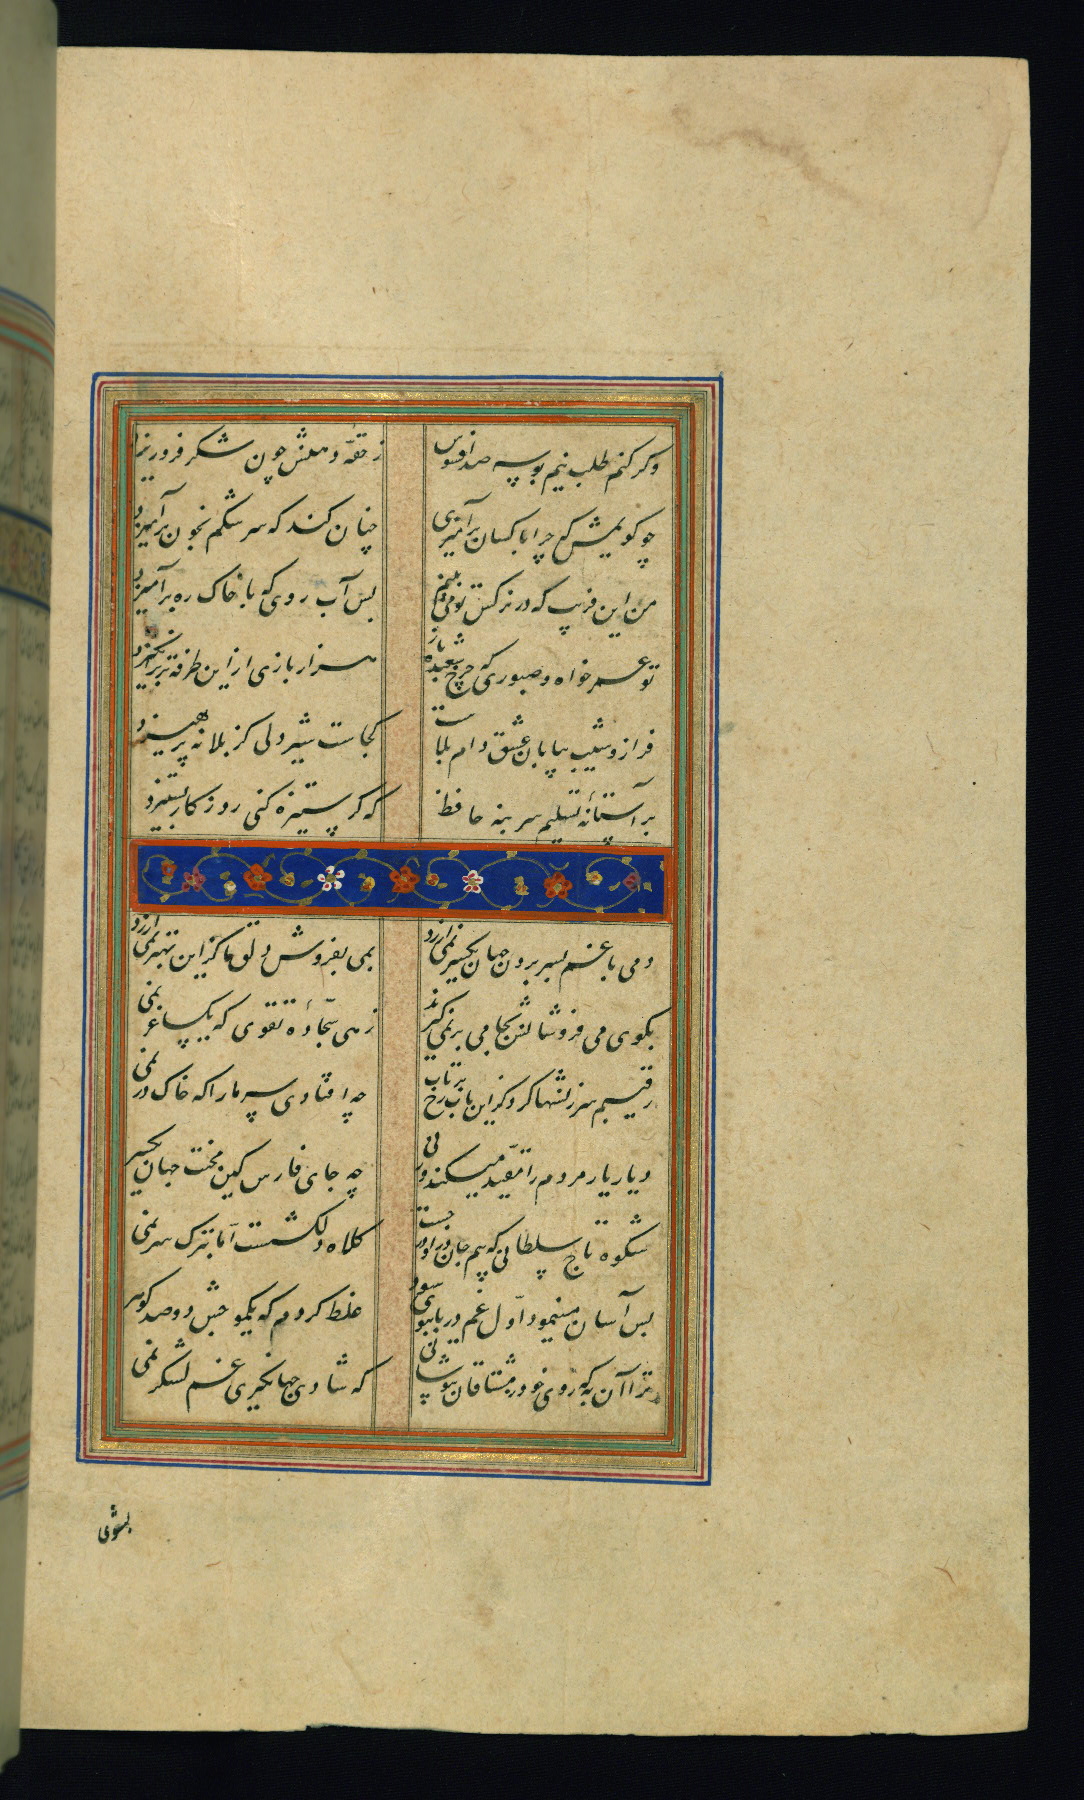 وگر کنم طلب نیم بوسه صد افسوس ز حقهٔ دهنش چون شکر فروریزد
چو گویمش که چرا با کسان برآمیزی چنان کند که سرشکم بخون برآمیزد
من این فریب که در نرگس تو می بینم بس آب روی که با خاک ره برآمیزد
تو عمر خواه و صبوری که چرخ شعبده باز هزار بازی ازین طرفه تر برانگیزد
فراز و شیب بیابان عشق دام بلاست کجاست شیردلی کز بلا نه پرهیزد
بر آستانهٔ تسلیم سر بنه حافظ که گر ستیزه کنی روزگار بستیزد
دمی با غم بسر بردن جهان یکسر نمی ارزد بمی بفروش دلق ما کزین بهتر نمی ارزد
بکوی می فروشانش بجامی بر نمی گیرند زهی سجّادهٔ تقوی که یک ساغر نمی
رقیبم سرزنشها کرد کزین باب رخ برتاب چه افتادی سر ما را که خاک در نمی
دیار یار مردم را مقیّد میکند ورنی چه جای فارس کین محنت جهان یکسر
شکوه تاج سلطانی که بیم جان درو درجست کلاه دلکشست امّا بترک سر نمی
بس آسان مینمود اوّل غم دریا ببوی سود غلط کردم که یک موجش دو صد گوهر
ترا آن به که روی خود ز مشتاقان بپوشانی که شادی جهانگیری غم لشکر نمی
بشوی